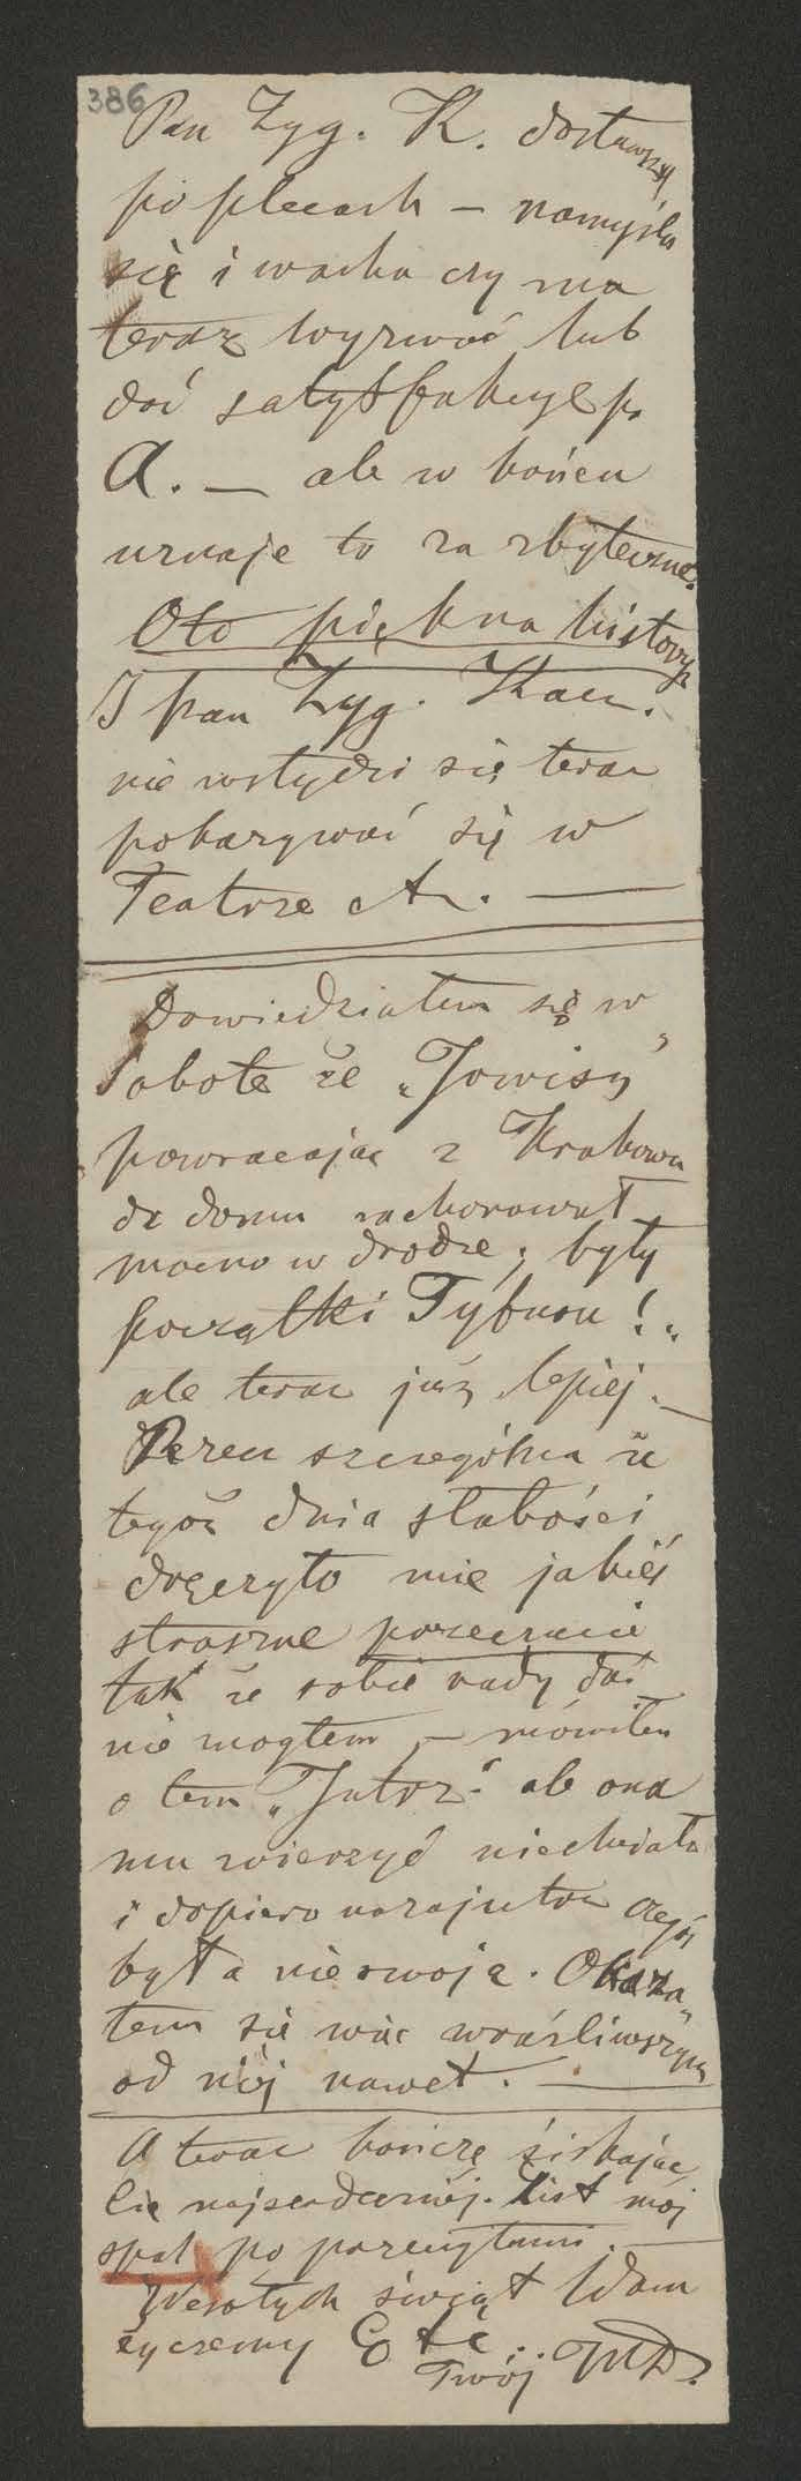 386
Pan Zyg. K. dostawszy
po plecach – namyśla
się i wacha czy ma
teraz wyzwać lub
dać satysfakcyę p.
A. — ale w końcu
uznaje to za zbyteczne.
Oto piękna historya
I pan Zyg. Kacz.
nie wstydzi się teraz
pokazywać się w
Teatrze —
Dowiedziałem się w
Sobotę że „Jowisz”
powracając z Krakowa
do domu zachorował
mocno w drodze; były
początki Tyfusu!
ale teraz już lepiej. —
Rzecz szczególna że
tegoż dnia słabości
dręczyło mie jakieś
straszne przeczucie
tak że sobie rady dać
nie mogłem, – mówiłem
o tem „Jutrz.” ale ona
mu wierzyć niechciała
i dopiero nazajutrz czegoś
była nieswoja. Okaza„
łem się więc wraźliwszym
od niéj nawet. —
A teraz kończę ściskając
Cię najserdeczniéj. List mój
spal po przeczytaniu. —
Wesołych świąt Wam
życzemy Etc..
Twój MD.